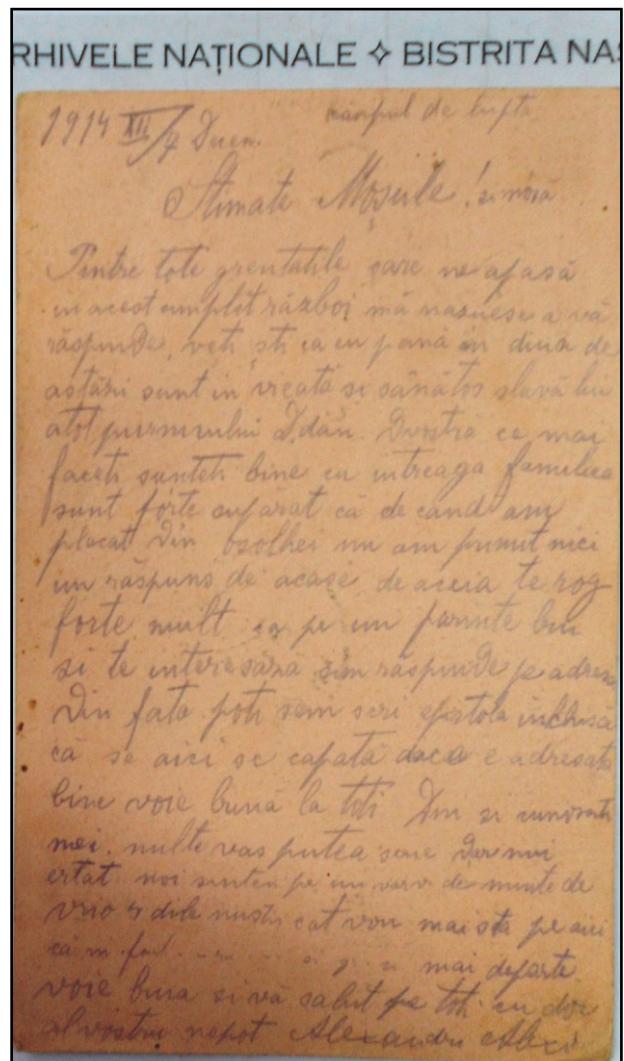 RHIVELE NAȚIONALE ✧ BISTRITA NAS
1914 XII/4 Decem. câmpul de lupta
Stimate Moșule! si moșă
Pintre tote greutatile care ne apasă
in acest cumplit război mă năsuesc a vă
răspunde, veti sti ca eu pană in diua de
astări sunt in vieată si sănătos slavă lui
atot D.dău. Dvostră ce mai
faceti sunteti bine cu intreaga familiea
sunt forte suparat că de cand am
plecat din am primit nici
un răspuns de acase de aceia te rog
forte mult ca pe un parinte bun
si te intereseaza răspunde pe adresa
din fata poti scri epistola inchisă
că se aici se capată daca e adresată
bine voie bună la toti si
mei. multe vas putea scrie dar nui
ertat noi suntem pe un varv de munte de
vrio dile cat vom mai sta pe aici
că mai departe
voie buna si vă salut pe toti cu dor
al vostru nepot Alexandru